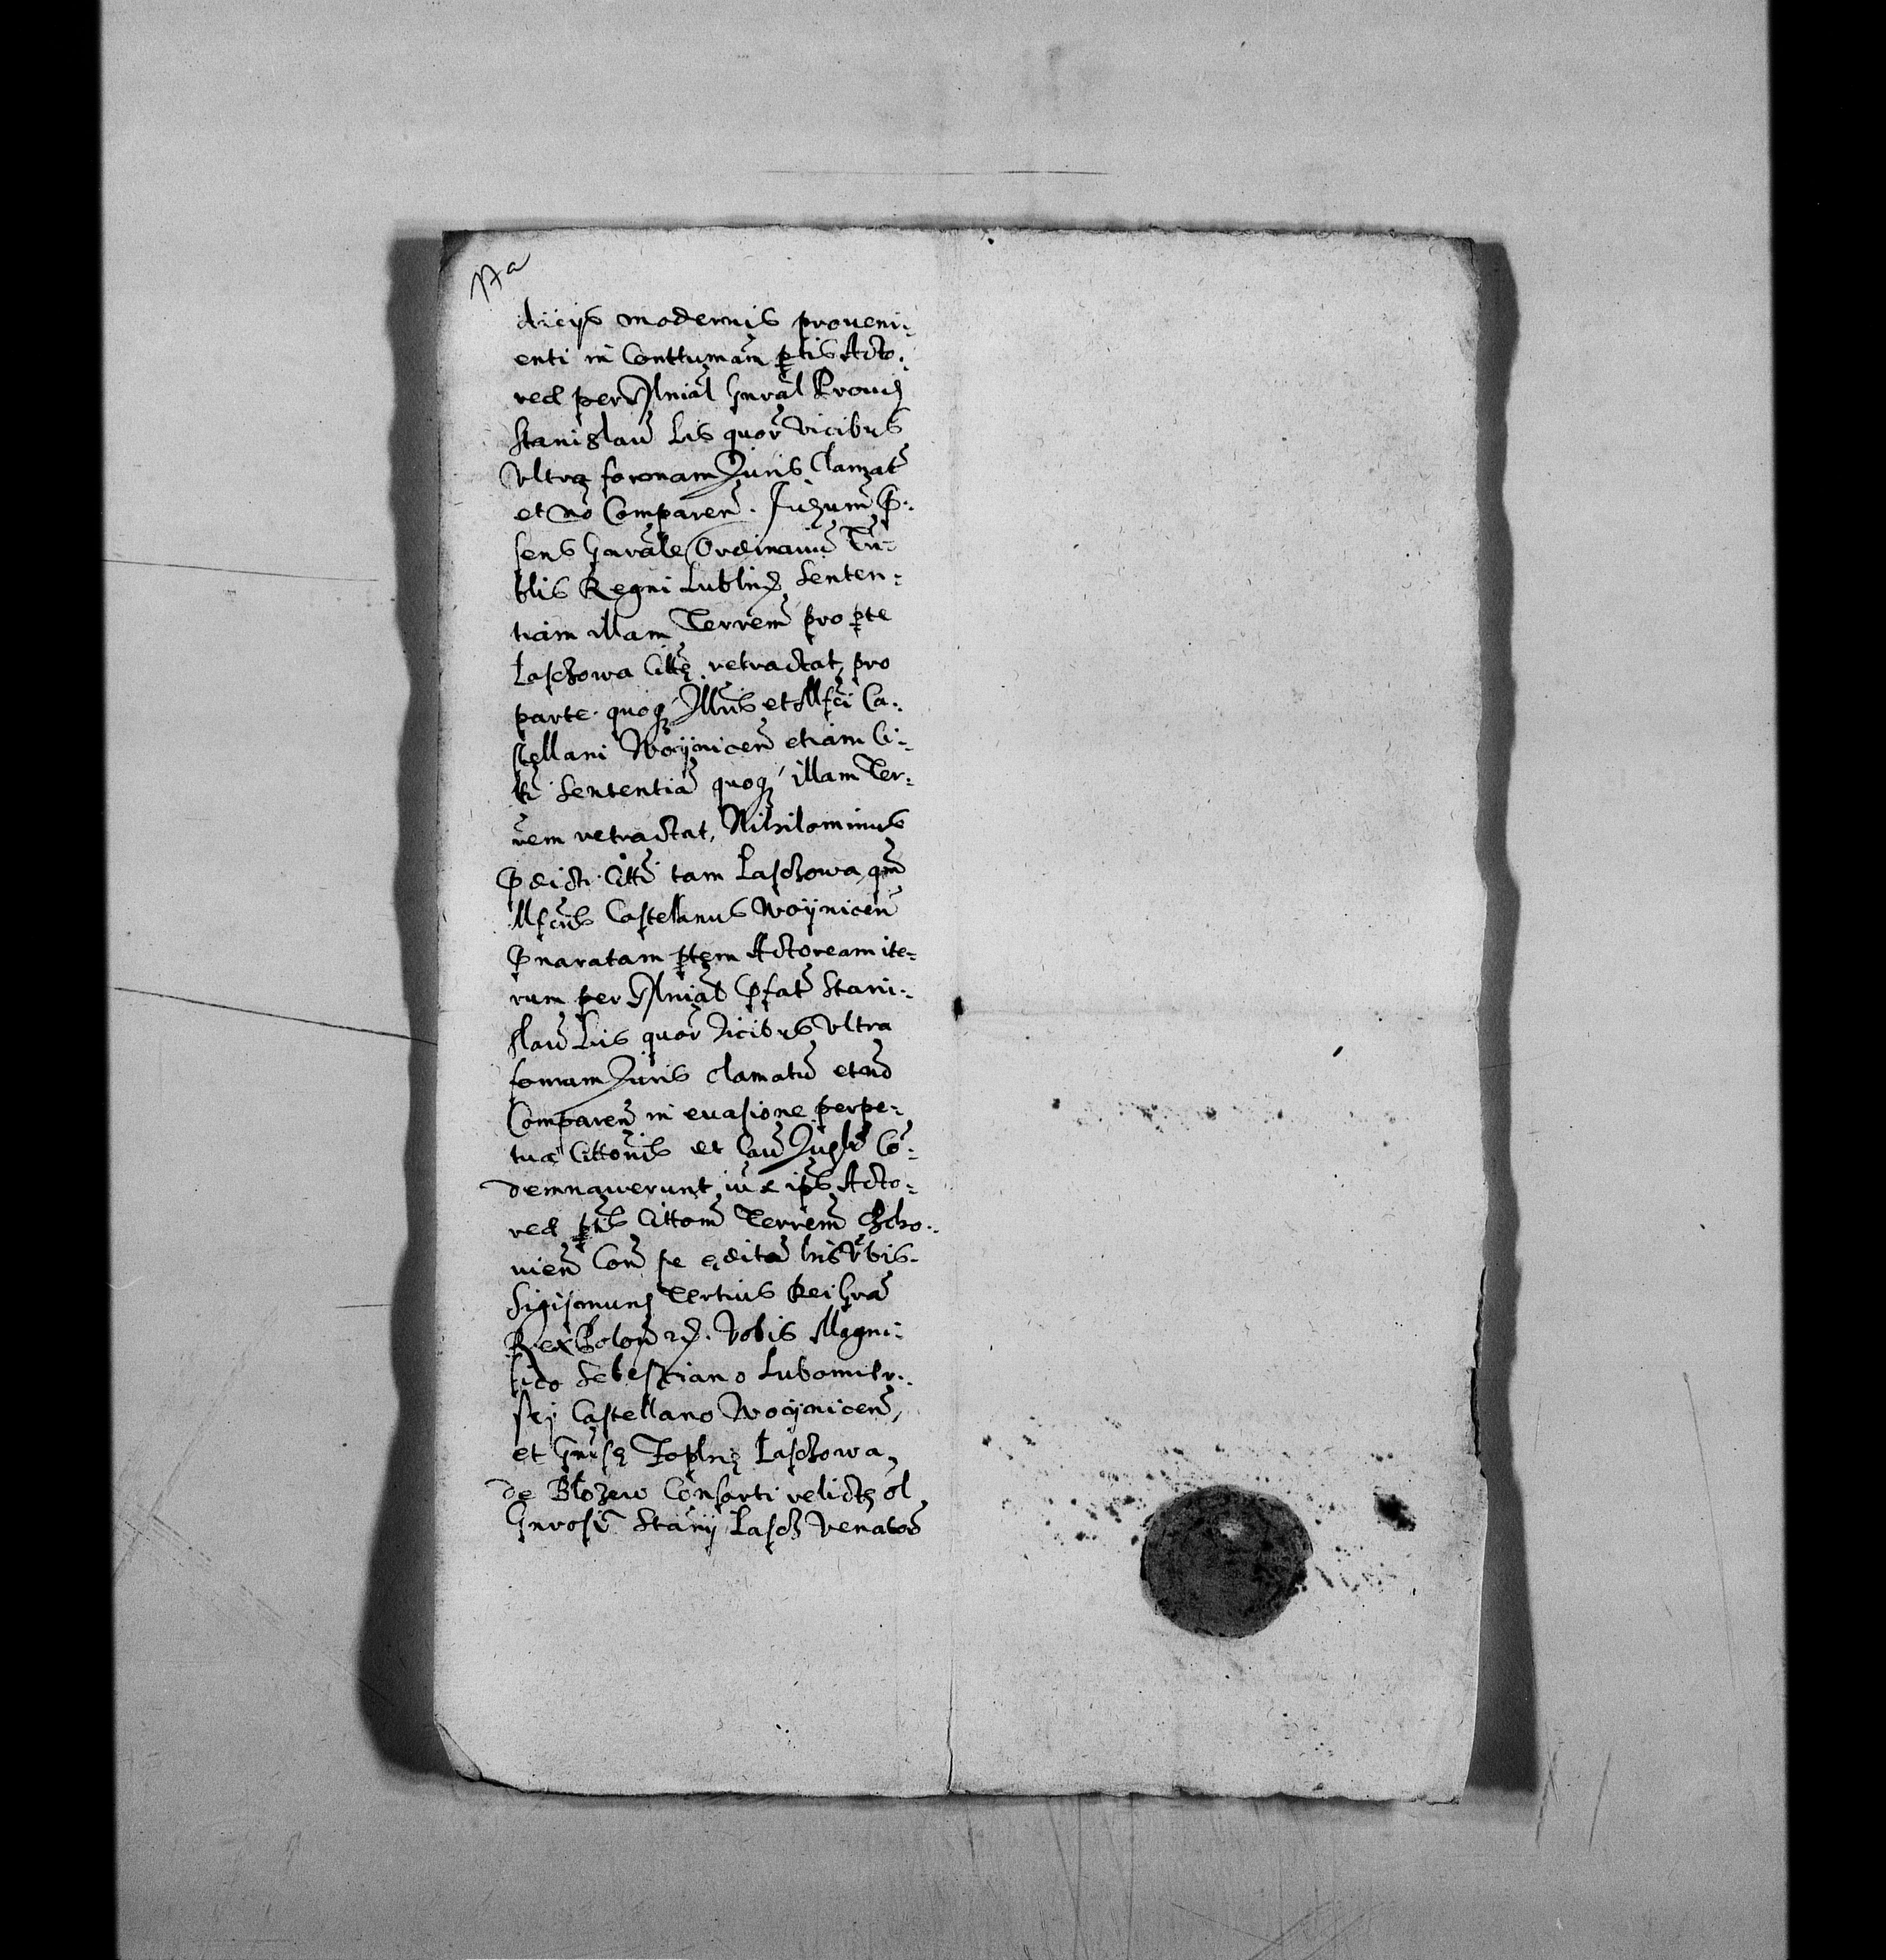 17a
diciis modernis proueni:
enti in Conttumam ptis Acto:
reae per Mnial Gnral Prouis
Stanislau Lis quor vicibus
vltra formam Juris Clamat
et no Comparen. Judium P:
sens Gnrale Ordinariu Tri:
blis Regni Lublin Senten:
tiam illam Terrem pro pte
Laschowa Citte retractat, pro
parte quoq Illris et Mfci Ca:
stellani Woynicen etiam Ci:
ti Sententia quoq illam Ter:
rem retractat, Nihilominus
Pdicti Citti tam Laschowa qm
Mfcus Castellanus Woynicen
Pnaratam ptem Actoream ite:
rum per Mnial Pfat Stani:
slau Lis quor vicibus vltra
formam Juris clamatu et no
Comparen in euasione perpe:
tua Cittonis et Cau Co:
demnauerunt ips Acto:
reae ptis Citton Terrem
uien Con se edita his vbis
Sigismund Tertius Dei Gra
Rex Polon Vobis Magni:
fico Sebestiano Lubomir:
scij Castellano Woynicen,
et Gnse Zophie Laschowa,
de Blozew Consorti relicte ol
Gnrosi Stanij Lasch Venatoris